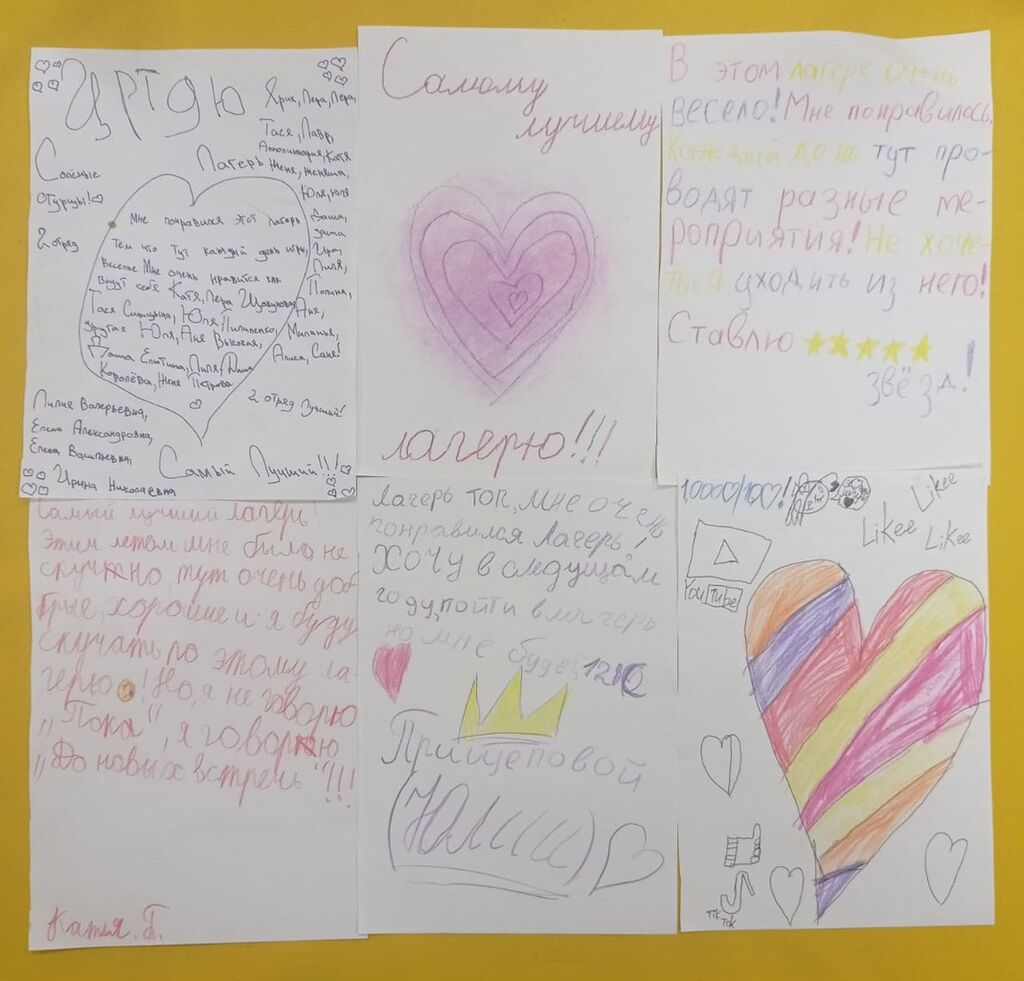 ЦРТДЮ
Ярик, Лера, Лера,
Тася, Лавр,
Апполинария, Катя
Женя, Женяша,
Юля, Юля
Даша,
Лиля,
Полина,
Солёные
огурцы!
2 отряд
Лагерь
Мне понравился этот лагерь
Тем что тут каждый день игры,
веселье Мне очень нравится как
ведут себя Катя, Лера
Тася Синицына, Юля Пилипенко, Аня,
другая Юля, Аня Высокая, Миланья,
Даша Елютина, Лиля, Даша Алиса, Саня!
Королёва, Женя Петрова
2 отряд Лучший!
Лилие Валерьевна,
Елена Александровна,
Елена Васильевна,
Ирина Николаевна
Самый Лучший!!!
Самому
лучшему
лагерю!!!
В этом лагере очень
весело! Мне понравилось.
Каждый день тут про-
водят разные ме-
роприятия! Не хоче-
ться уходить из него!
Ставлю
звёзд!
Самый лучший лагерь!
Этим летом мне было не
скучно, тут очень доб
брые, хорошие и я буду
скучать по этому ла-
герю! Но, я не говорю
„Пока“, я говорю
„До новых встречь“!!!
Катя. Б.
Лагерь топ, мне очень
понравился Лагерь!
Хочу в следущам
году пойти в лагерь
но мне будет 12
Прищеповой
(Юлии)
10000/100!
Likee
Likee
Likee
YouTube
Tik
Tok